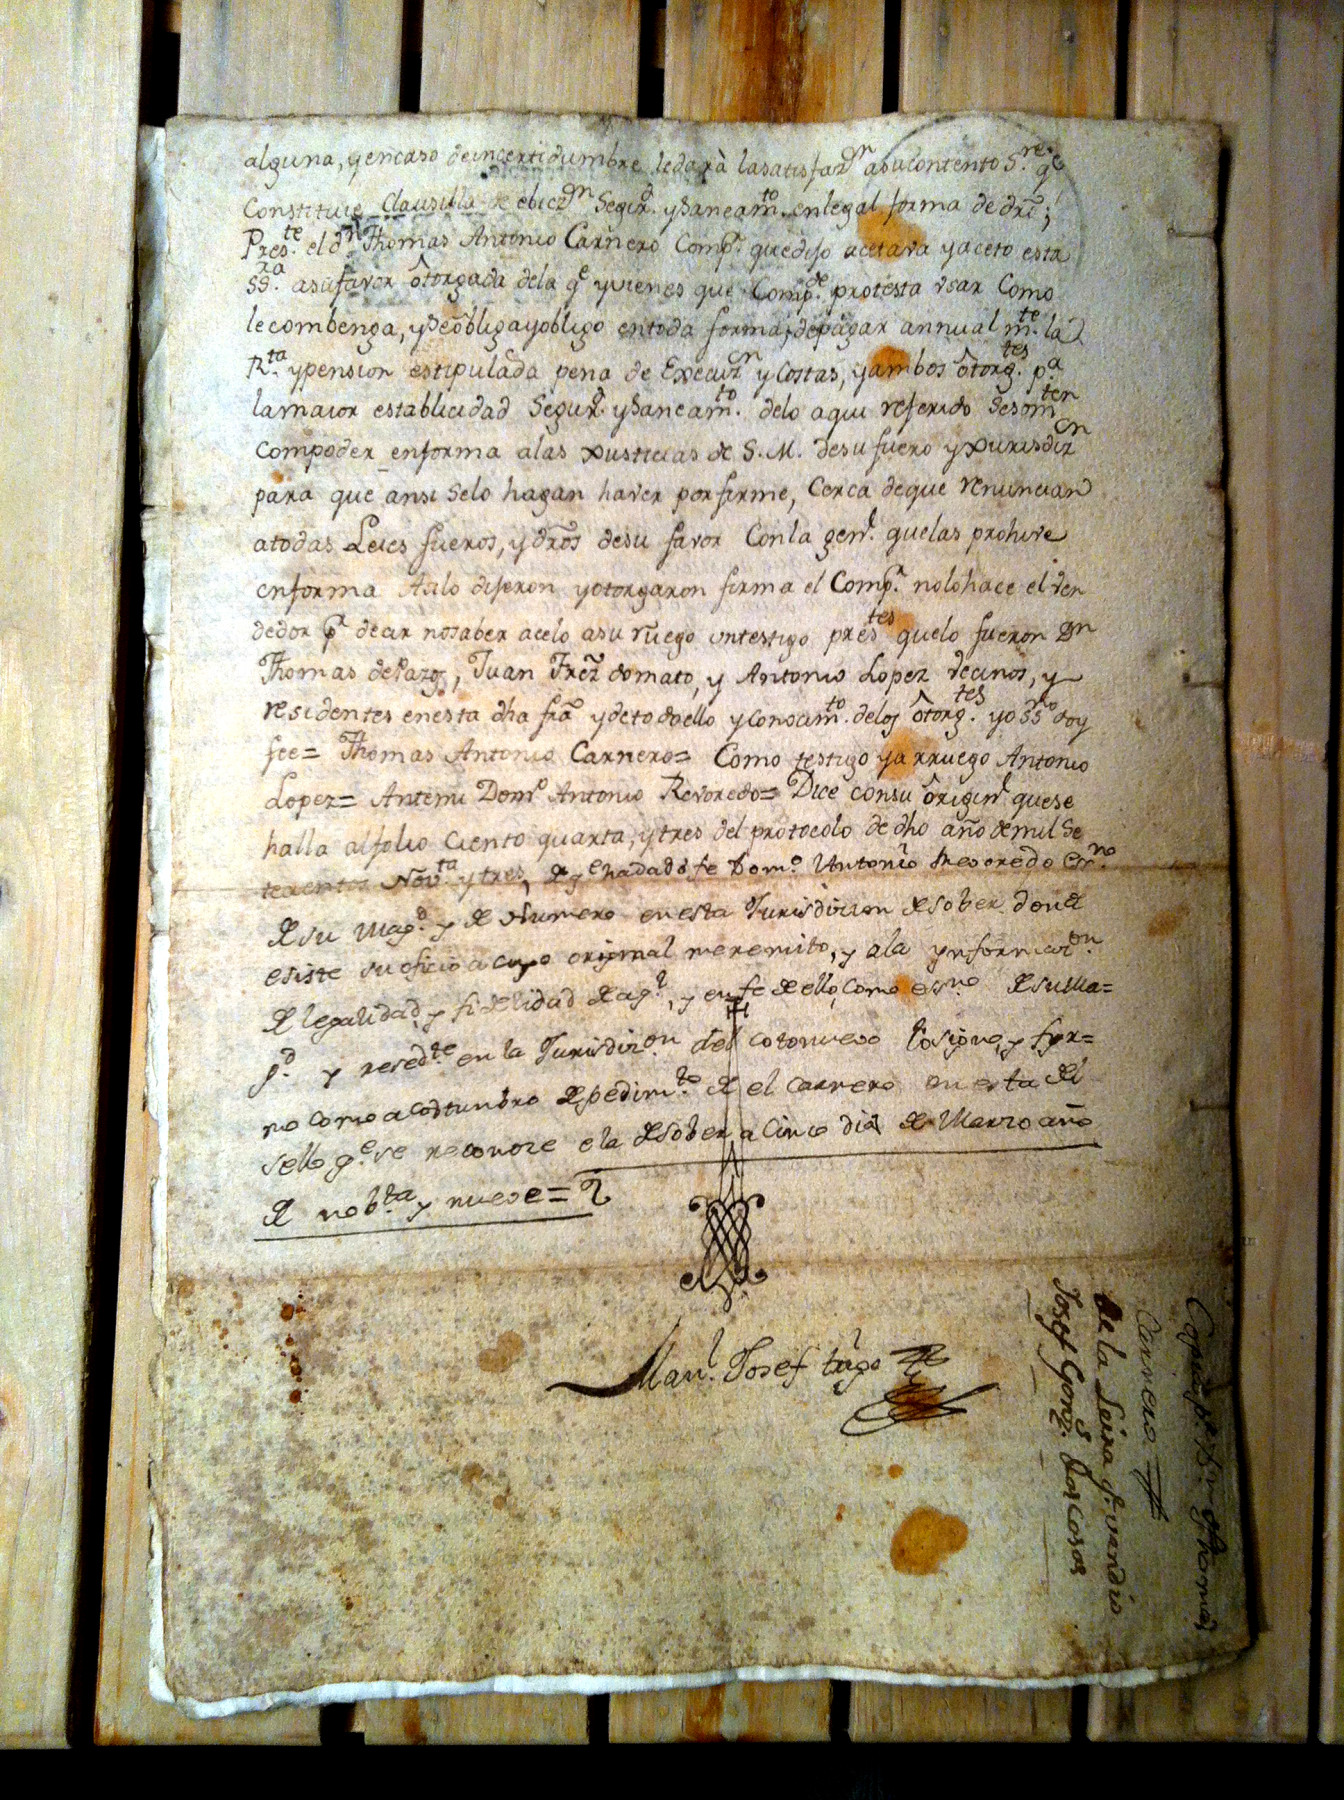 alguna, y encaso deincertidumbre ledarà lasatisfazn asucontento Sre qe
Constituie Clausula de ebiczn Segurd. ysaneamto. enlegal forma de dro;
Preste. el dn Thomas Antonio Carnero Compr. quedijo acetava yaceto esta
SSra. asufavor ôtorgada dela qe yvienes que Compde. protesta vsar Como
lecombenga, ySeobligayobligo entoda forma, depagar annualmte. la
Rta. ypension estipulada pena de Execuzn y Costas, yambos ôtorgtes. pa
lamaior establicidad Segurd. ySaneamto. delo aqui referido Sesomten
Compoder enforma alas xusticias de S. M. desu fuero yxurisdizn
para que ansi Selo hagan haver porfirme, Cerca deque renuncian
atodas Leies fueros, y dros desu favor Conla genl. quelas prohive
enforma Asilo dijeron yotorgaron firma el Compr. nolohace el ven
dedor pr decir nosaber acelo asu ruego untestigo prestes quelo fueron Dn
Thomas dePazos, Juan Frez domato, y Antonio Lopez vecinos, y
residentes enesta dha fra ydetodoello yconocimto. delos ôtorgtes. yo SSno doy
fee= Thomas Antonio Carnero= Como testigo yarruego Antonio
Lopez= Antemi Domo Antonio Revoredo= Dice consu origl. quese
halla alfolio Ciento quarta, ytres del protocolo de dho año demil Se
tecentos Novta. ytres, de qe hadado fe Domo. Antonio Reboredo esno.
de su Magd. y de Numero en esta Jurisdizion de sober donde
esiste su oficio a cuyo original meremito, y ala ynformazon.
de legalidad, y fidelidad de aql., y enfe de ello, como esno. de su Ma=
gd. y resedte. en la Jurisdizon. del cotonuebo lo signe, y fir=
mo como acostumbro de pedimto. de el carnero en esta del
sello qe. se reconoze e la de sober a Cinco dias de Marzo año
de nobta. y nuebe=
Manl. Josef
Carnero
de la Leira qe. vendio
Josef Gonzs. Dascasas